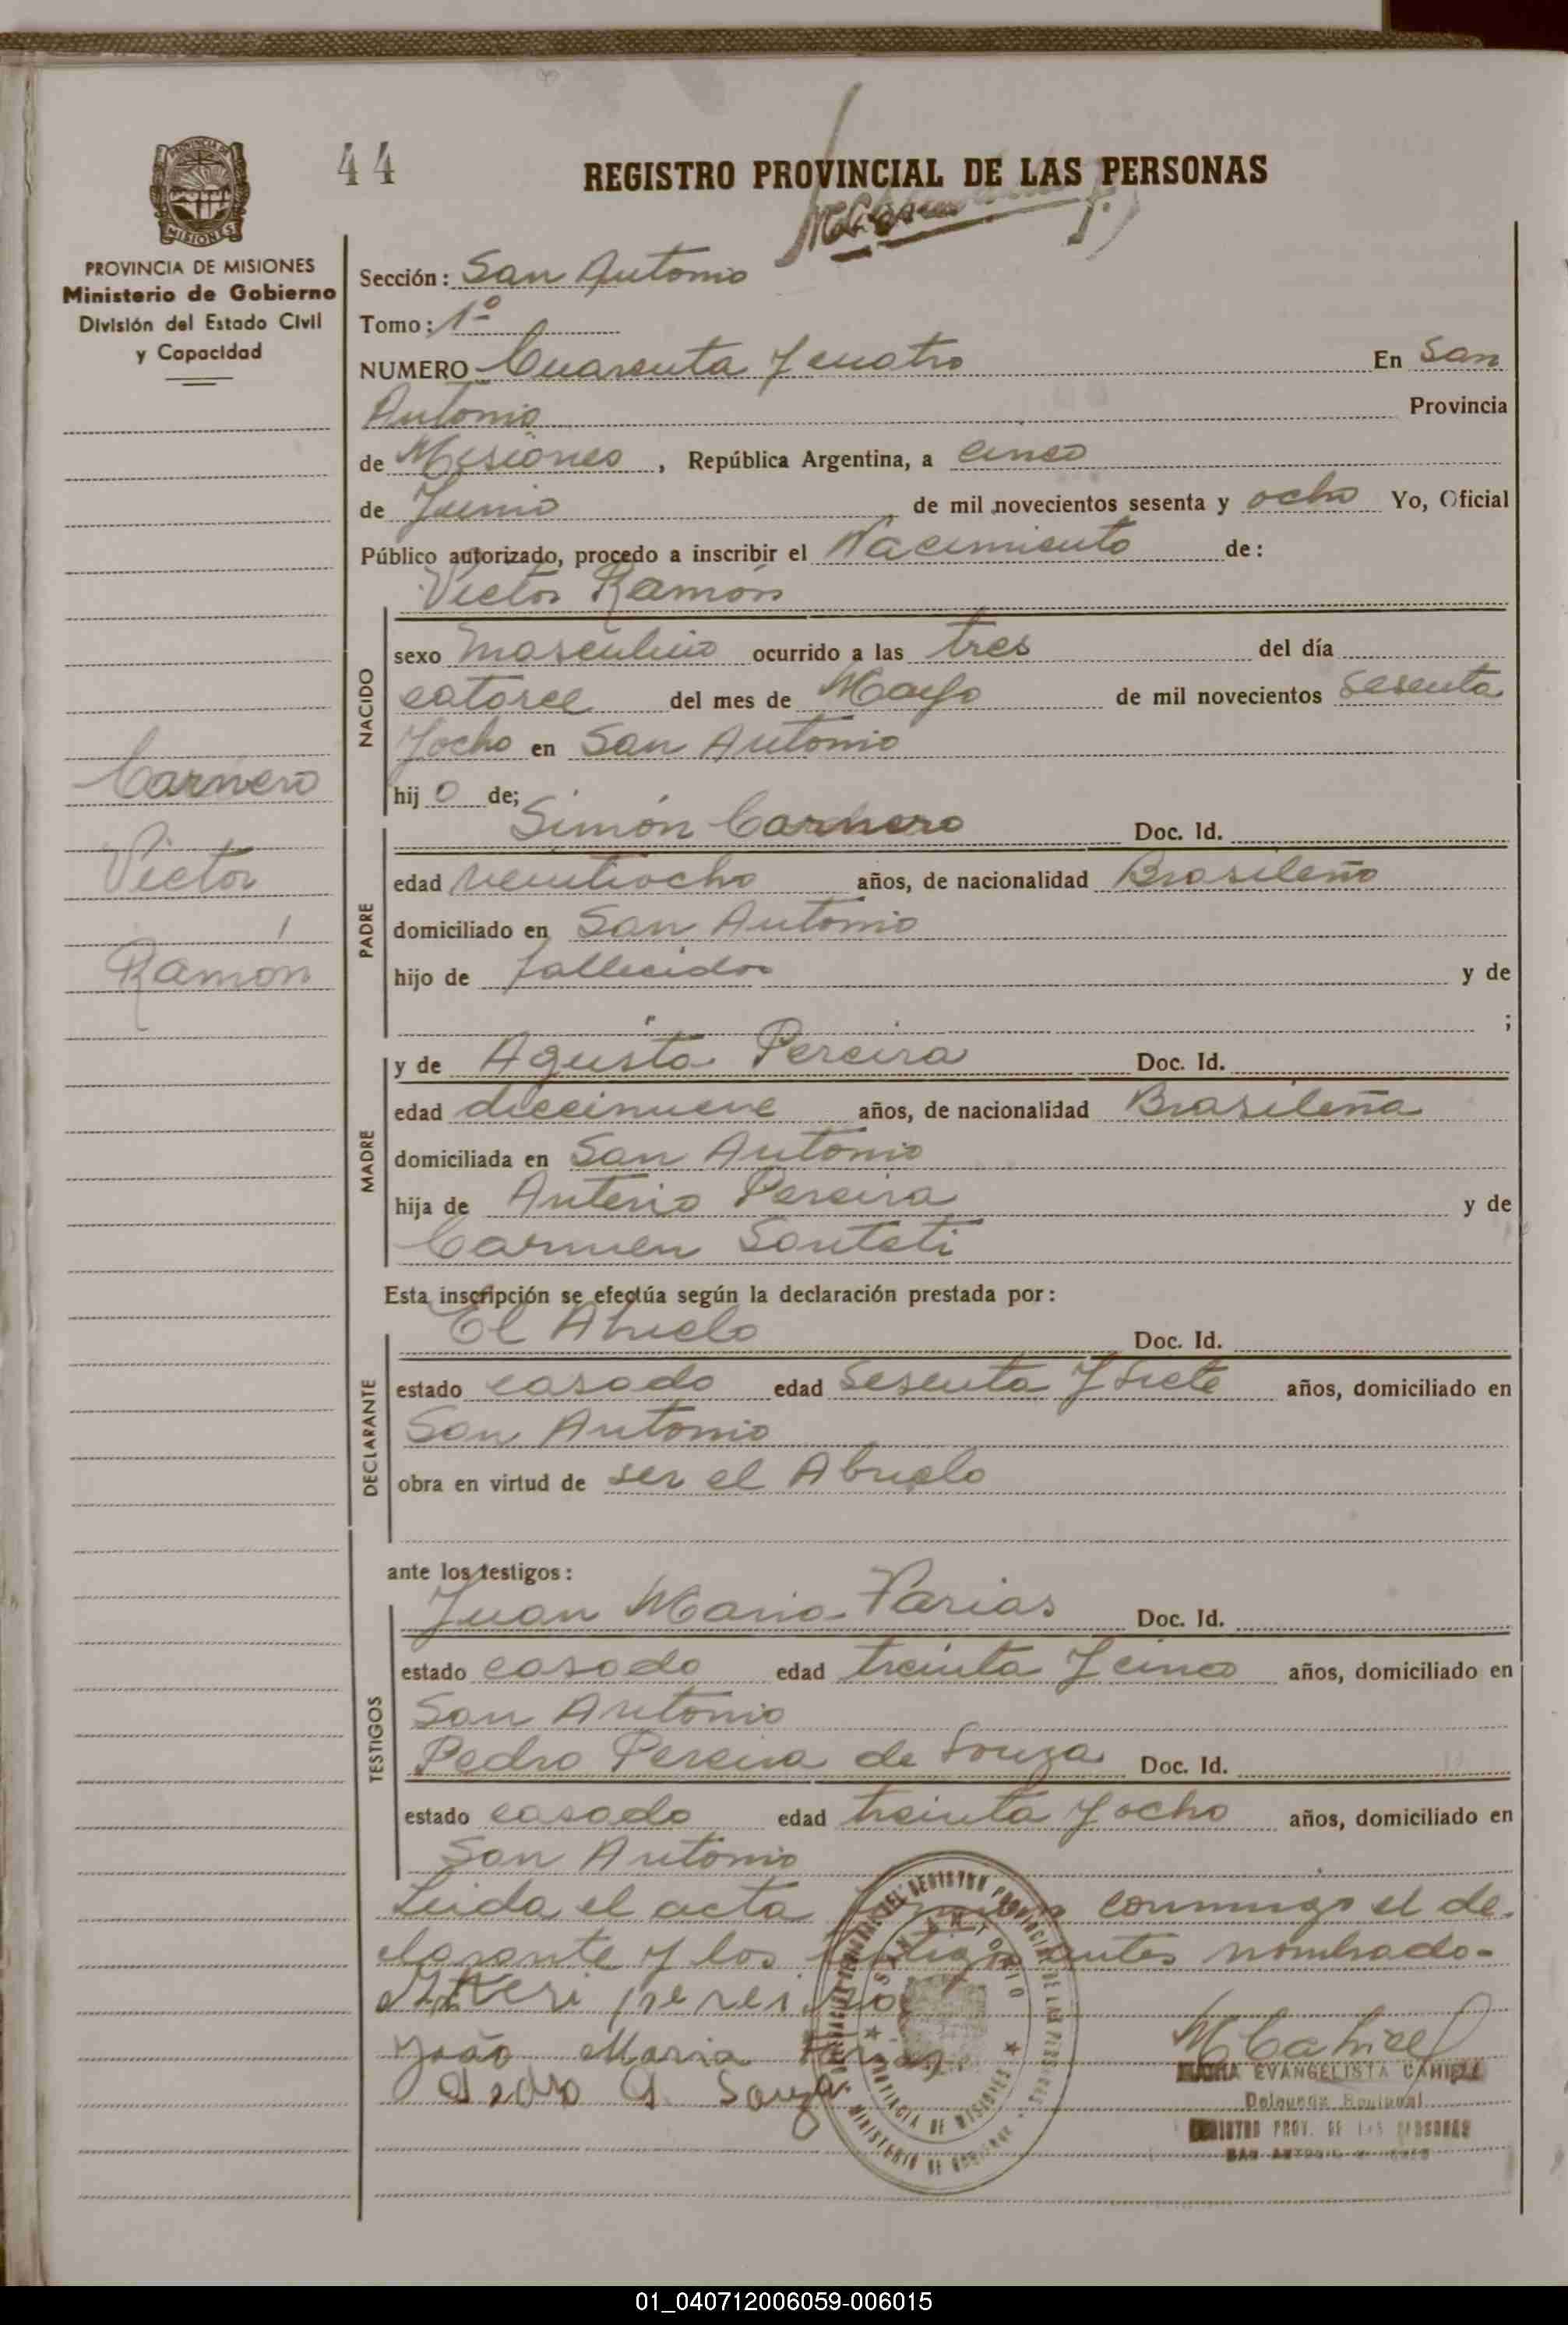 44
REGISTRO PROVINCIAL DE LAS PERSONAS
PROVINCIA DE MISIONES
Ministerio de Gobierno
División del Estado Civil
y Capacidad
Sección: San Antonio
Tomo: 1º
NUMERO Cuarenta y cuatro En San
Antonio Provincia
de Misiones, República Argentina, a cinco
de Junio de mil novecientos sesenta y ocho Yo, Oficial
Público autorizado, procedo a inscribir el Nacimiento de:
Victor Ramón
NACIDO
sexo masculino ocurrido a las tres del día
catorce del mes de Mayo de mil novecientos sesenta
y ocho en San Antonio
hij o de;
Carnero
Victor
Ramón
PADRE
Simón Carnero Doc. Id.
edad veintiocho años, de nacionalidad Brasileño
domiciliado en San Antonio
hijo de fallecidos y de
" ;
MADRE
y de Agusta Pereira Doc. Id.
edad diecinueve años, de nacionalidad Brasileña
domiciliada en San Antonio
hija de Anterio Pereira y de
Carmen
Esta inscripción se efectúa según la declaración prestada por:
DECLARANTE
El Abuelo Doc. Id.
estado casado edad sesenta y siete años, domiciliado en
San Antonio
obra en virtud de ser el Abuelo
ante los testigos:
TESTIGOS
Juan Maria Farias Doc. Id.
estado casado edad treinta y cinco años, domiciliado en
San Antonio
Pedro Pereira de Souza Doc. Id.
estado casado edad treinta y ocho años, domiciliado en
San Antonio
Leida el acta firman conmigo el de-
clarante y los testigos antes nombrado-
pereira
João Maria Farias
Pedro P. Souza
M Cahiel
EVANGELISTA CAHIEL
REGISTRO PROV. DE LAS PERSONAS
SAN ANTONIO
SAN ANTONIO
PROVINCIA DE MISIONES
MINISTERIO DE GOBIERNO
01_040712006059-006015